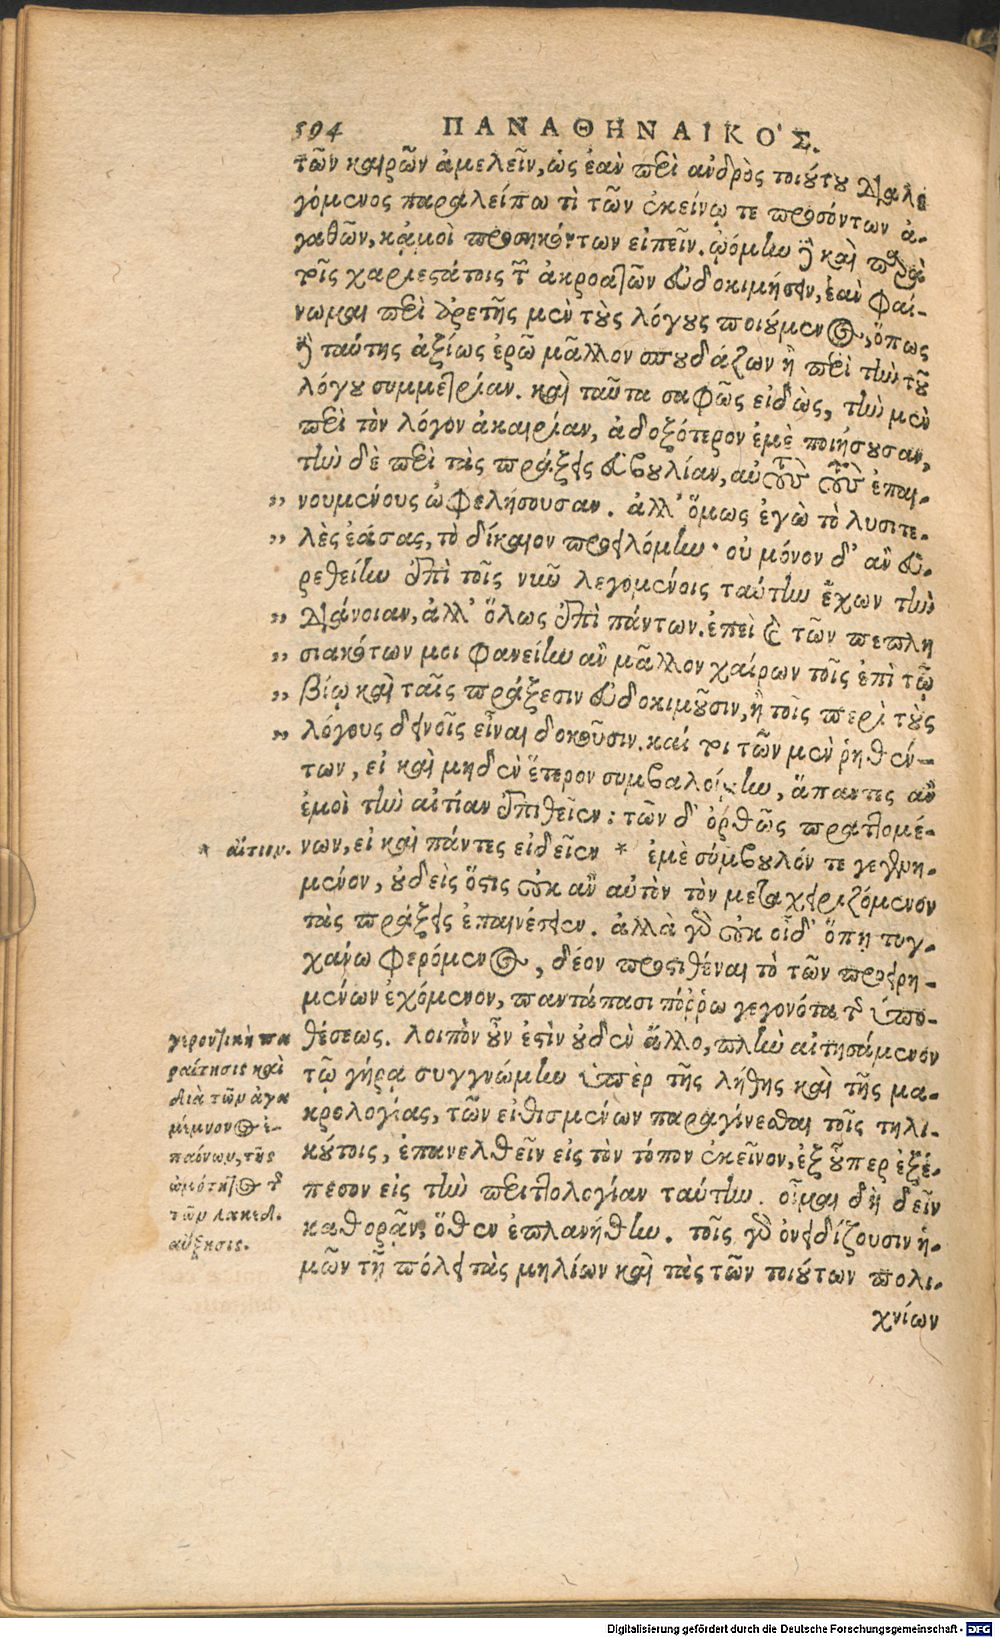 594 ΠΑΝΑΘΗΝΑΙΚΟ'Σ.
τῶν καιρῶν ἀμελεῖν, ὡς ἐὰν περὶ ἀνδρὸς τοιούτου διαλε
γόμενος παραλείπω τὶ τῶν ἐκείνῳ τε προσόντων ἀ-
γαθῶν, κᾀμοὶ προσηκόντων εἰπεῖν. ᾠόμην δὲ καὶ παρὰ
τοῖς χαριεστάτοις τῶν ἀκροατῶν εὐδοκιμήσειν, ἐὰν φαί-
νωμαι περὶ ἀρετῆς μὲν τοὺς λόγους ποιούμενος, ὅπως
δὲ ταύτης ἀξίως ἐρῶ μᾶλλον σπουδάζων ἢ περὶ τὴν τοῦ
λόγου συμμετρίαν. καὶ ταῦτα σαφῶς εἰδὼς, τὴν μὲν
περὶ τὸν λόγον ἀκαιρίαν, ἀδοξότερον ἐμὲ ποιήσουσαν,
τὴν δὲ περὶ τὰς πράξεις εὐβουλίαν, αὐτοὺς τοὺς ἐπαι-
" νουμένους ὠφελήσουσαν. ἀλλ' ὅμως ἐγὼ τὸ λυσιτε-
" λὲς ἐάσας, τὸ δίκαιον προειλόμην. οὐ μόνον δ' ἂν εὑ-
ρεθείην ἐπὶ τοῖς νῦν λεγομένοις ταύτην ἔχων τὴν
" διάνοιαν, ἀλλ' ὅλως ἐπὶ πάντων. ἐπεὶ καὶ τῶν πεπλη
" σιακότων μοι φανείην ἂν μᾶλλον χαίρων τοῖς ἐπὶ τῷ
" βίῳ καὶ ταῖς πράξεσιν εὐδοκιμοῦσιν, ἢ τοῖς περὶ τοὺς
" λόγους δεινοῖς εἶναι δοκοῦσιν. καί τοι τῶν μὲν ῥηθέν-
των, εἰ καὶ μηδὲν ἕτερον συμβαλοίμην, ἅπαντες ἂν
ἐμοὶ τὴν αἰτίαν ἐπιθεῖεν: τῶν δ' ὀρθῶς πραττομέ-
* αἴτιον. νων, εἰ καὶ πάντες εἰδεῖεν * ἐμὲ σύμβουλόν τε γεγενη-
μένον, οὐδεὶς ὅστις οὐκ ἂν αὐτὸν τὸν μεταχειριζόμενον
τὰς πράξεις ἐπαινέσειεν. ἀλλὰ γὰρ οὐκ οἶδ' ὅπη τυγ-
χάνω φερόμενος, δέον προστιθέναι τὸ τῶν προειρη-
μένων ἐχόμενον, παντάπασι πόῤῥω γεγονότα τῆς ὑπο-
θέσεως. λοιπὸν οὖν ἐστὶν οὐδὲν ἄλλο, πλὴν αἰτησάμενον
τῷ γήρᾳ συγγνώμην ὑπὲρ τῆς λήθης καὶ τῆς μα-
κρολογίας, τῶν εἰθισμένων παραγίνεσθαι τοῖς τηλι-
κούτοις, ἐπανελθεῖν εἰς τὸν τόπον ἐκεῖνον, ἐξ οὗπερ ἐξέ-
πεσον εἰς τὴν περιττολογίαν ταύτην. οἶμαι δὴ δεῖν
καθορᾷν, ὅθεν ἐπλανήθην. τοῖς γὰρ ὀνειδίζουσιν ἡ-
μῶν τῇ πόλει τὰς μηλίων καὶ τὰς τῶν τοιούτων πολι-
χνίων
γεροντικὴ πα
ραίτησις καὶ
διὰ τῶν ἀγα
μέμνονος ἐ-
παίνων, τῆς
ὠμότητος τῆς
τῶν λακεδ.
αὔξησις.
Digitalisierung gefördert durch die Deutsche Forschungsgemeinschaft - DFG